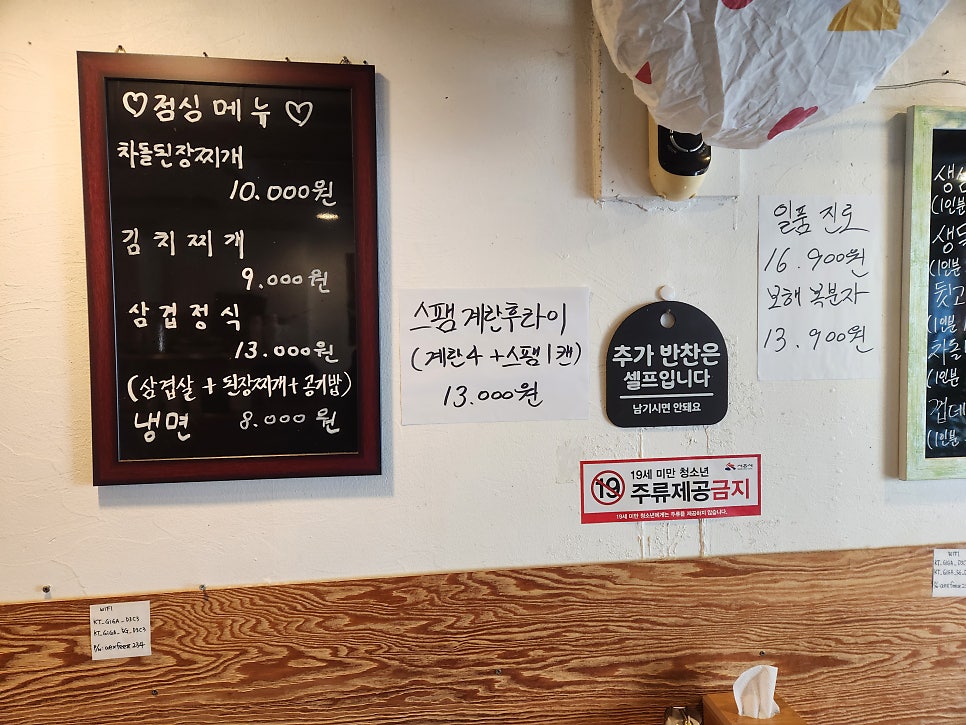 ♡점심 메뉴♡
차돌된장찌개
10.000원
김치찌개
9.000원
삼겹정식
13.000원
(삼겹살 + 된장찌개 + 공기밥)
냉면 8.000원
스팸 계란후라이
(계란4 + 스팸1캔)
13.000원
추가 반찬은
셀프입니다
남기시면 안돼요
일품 진로
16.900원
보해 복분자
13.900원
19
19세 미만 청소년
주류제공금지
19세 미만 청소년에게는 주류를 제공하지 않습니다.
(1인분
(1인분
(1인분
(1인분
(1인분
WIFI
KT_GIGA_D3C3
WIFI